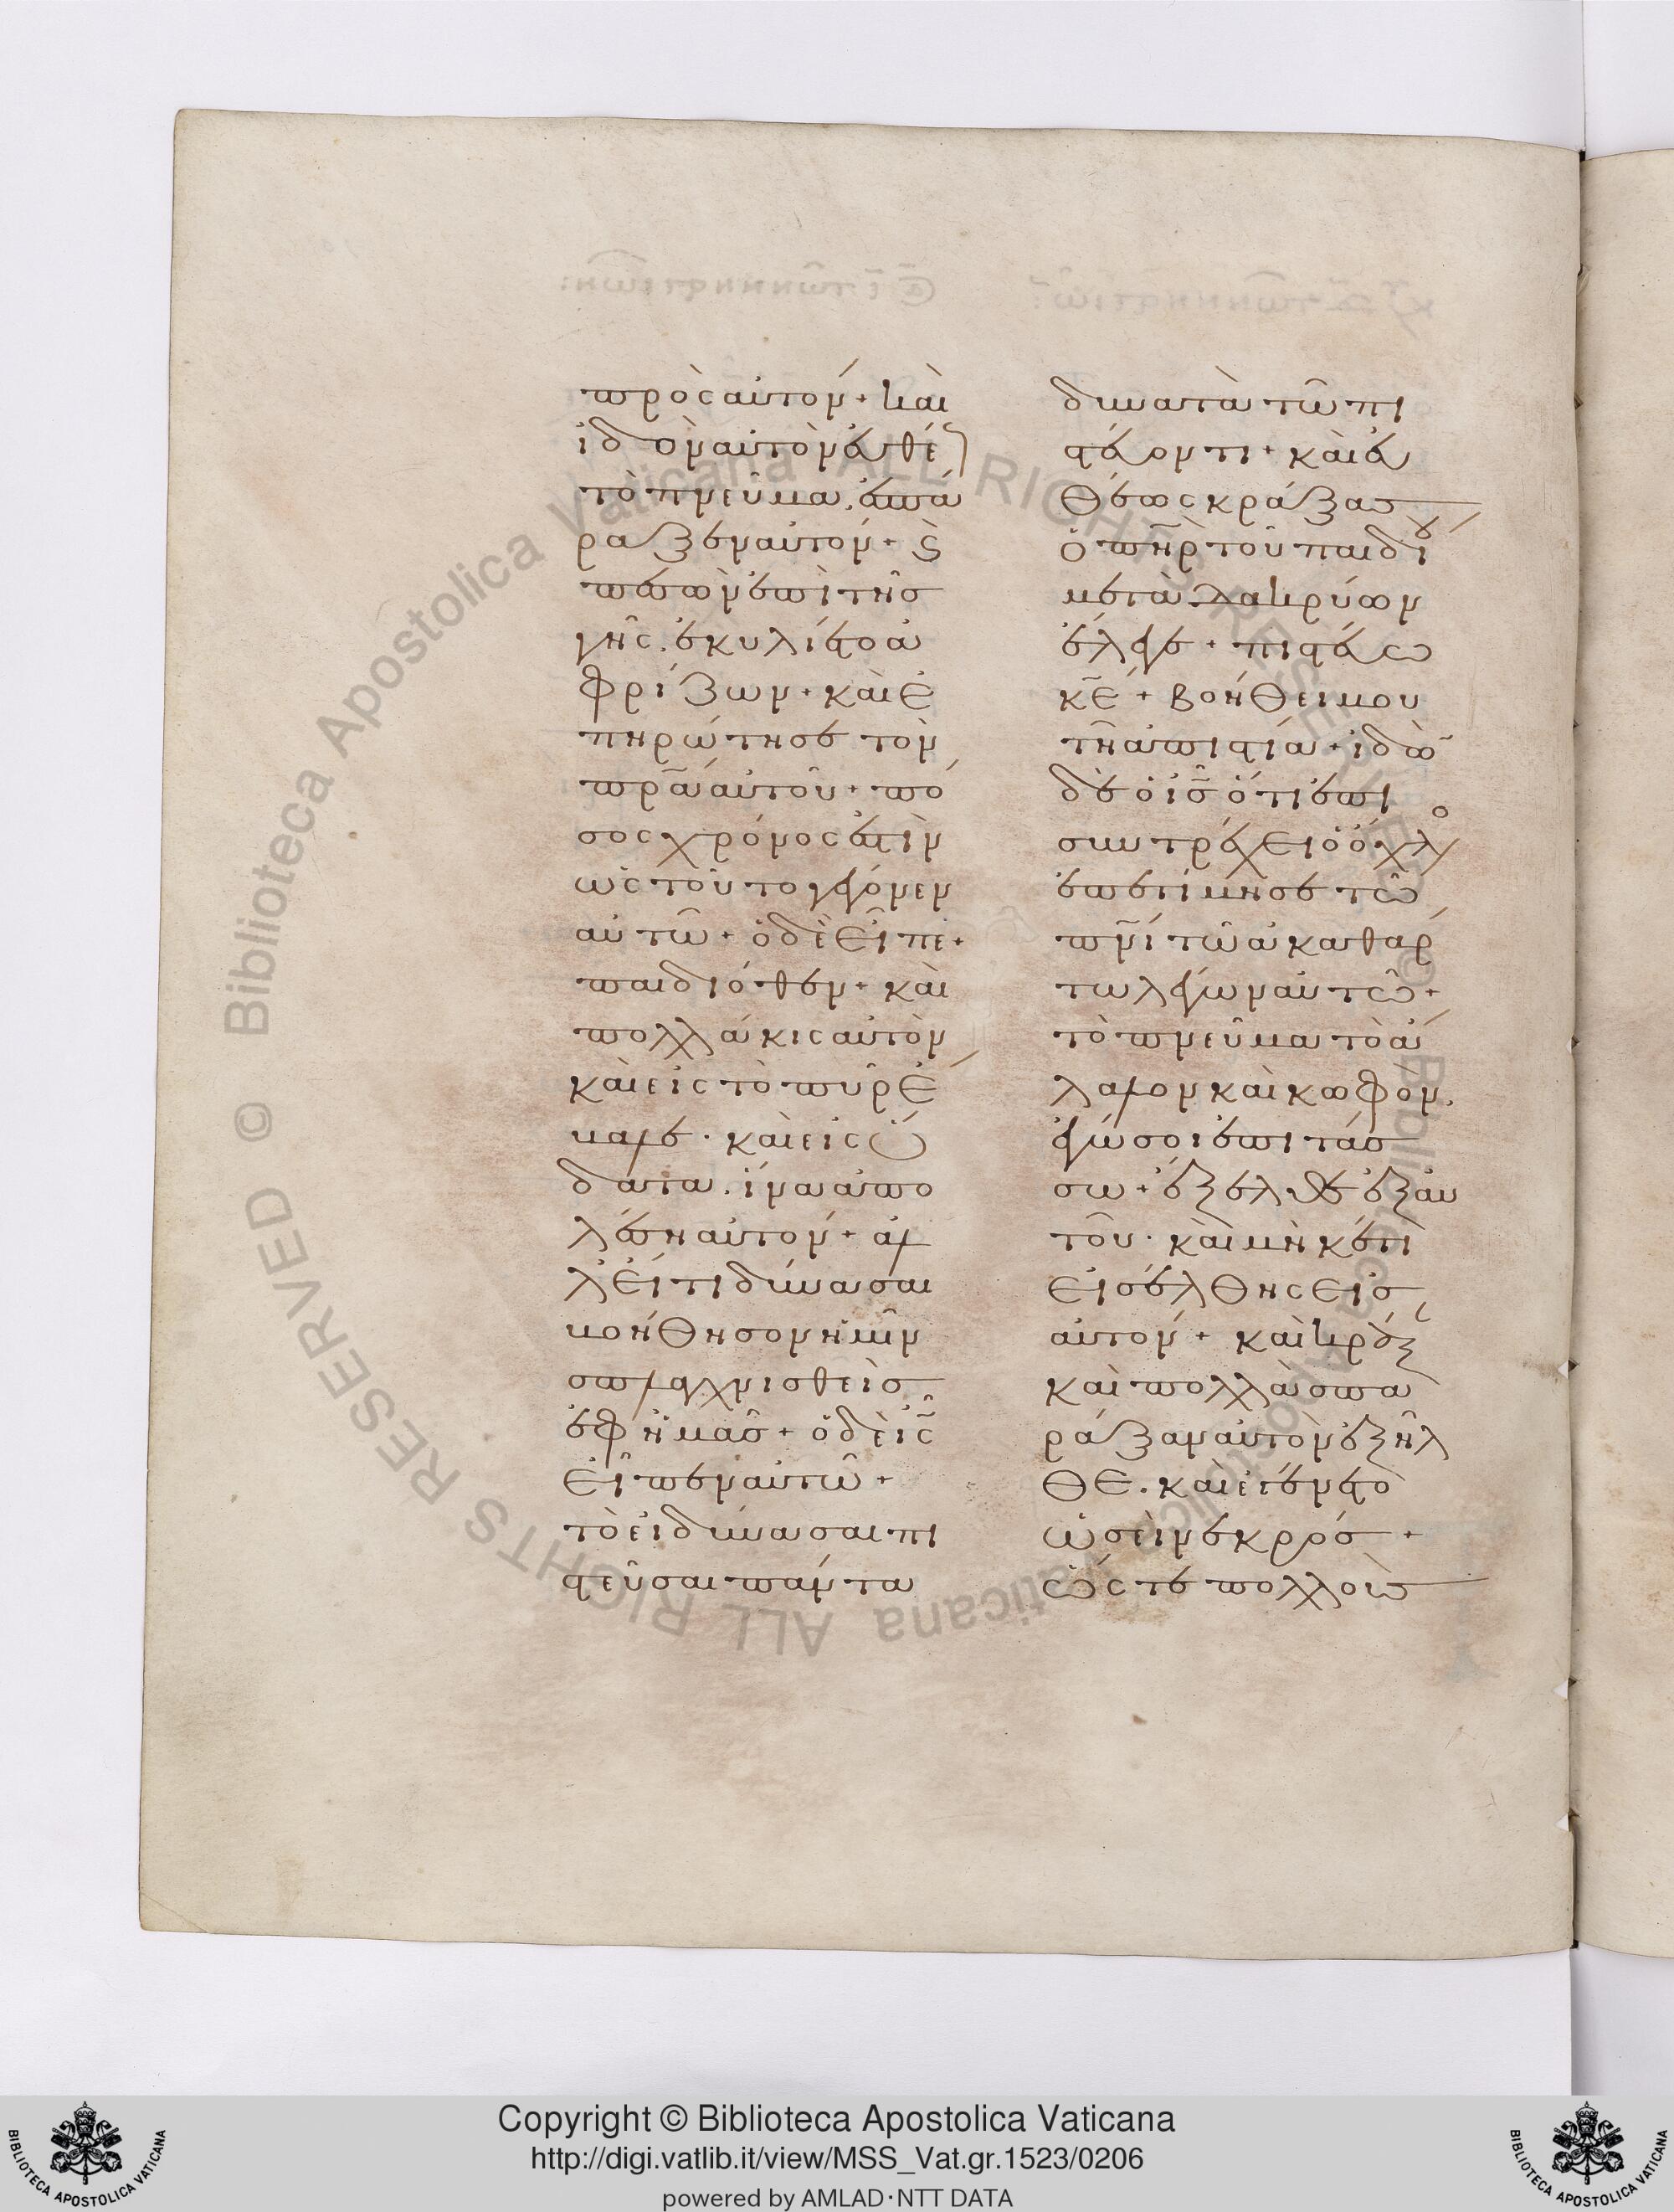 πρὸς αὐτόν + καὶ
ἰδὸν αὐτὸν εὐθέ
τὸ πνεῦμα. ἐσπά
ραξεν αὐτόν + καὶ
πεσὼν ἐπὶ τῆς
γῆς. ἐκυλίετο ἀ
φρίζων + καὶ ἐ
πηρώτησε τὸν
πρ̅α αὐτοῦ + πό
σος χρόνος ἐστὶν
ὡς τοῦτο γέγονεν
αὐτῶ + ὁ δὲ εἶπε +
παιδιόθεν + καὶ
πολλάκις αὐτὸν
καὶ εἰς τὸ πῦρ ἔ
βαλε · καὶ εἰς ὕ
δατα. ἵνα ἀπο
λέση αὐτόν + ἀλ
λ εἴ τι δύνασαι
βοήθησον ἡμῖν
σπλαγχνισθεὶς
ἐφ ἡμᾶς + ὁ δὲ ι̅ς
εἶπεν αὐτῶ +
τὸ εἰ δύνασαι πι
στεῦσαι πάντα
δυνατὰ τῶ πι
στεύοντι + καὶ εὐ
θέως κράξας
ὁ πη̅ρ τοῦ παιδίου
μετὰ δακρύων
ἔλεγε + πιστεύω
κ̅ε + βοήθει μου
τῆ ἀπιστία + ἰδὼν
δὲ ὁ ι̅ς ὅτι ἐπι
συντρέχει ὁ ὄχλο
ἐπετίμησε τῶ
πν̅ι τῶ ἀκαθάρ
τω λέγων αὐτῶ +
τὸ πνεῦμα τὸ ἄ
λαλον καὶ κωφόν.
ἐγώ σοι ἐπιτάσ
σω + ἔξελθε ἐξ αὐ
τοῦ · καὶ μὴκέτι
εἰσέλθης εἰς
αὐτόν + καὶ κράξ
καὶ πολλὰ σπα
ράξαν αὐτὸν ἐξῆλ
θε. καὶ ἐγένετο
ὡσεὶ νεκρός +
ὥστε πολλοὺς
Copyright © Biblioteca Apostolica Vaticana
http://digi.vatlib.it/view/MSS_Vat.gr.1523/0206
powered by AMLAD·NTT DATA
© Biblioteca Apostolica Vaticana ALL RIGHTS RESERVED
© Biblioteca Apostolica Vaticana ALL RIGHTS RESERVED
BIBLIOTECA APOSTOLICA VATICANA
BIBLIOTECA APOSTOLICA VATICANA